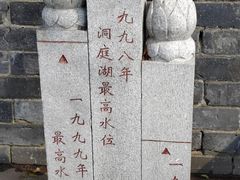 九九八年
洞庭湖最高水位
一九九九年
最高水
一